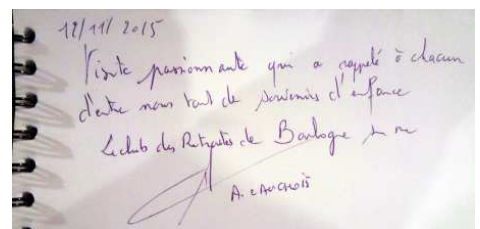 12/11/2015
Visite passionnante qui a rappelé à chacun
d'entre nous tant de souvenirs d'enfance
Le club des Retraités de Boulogne sur mer
A. CAUCHOIS